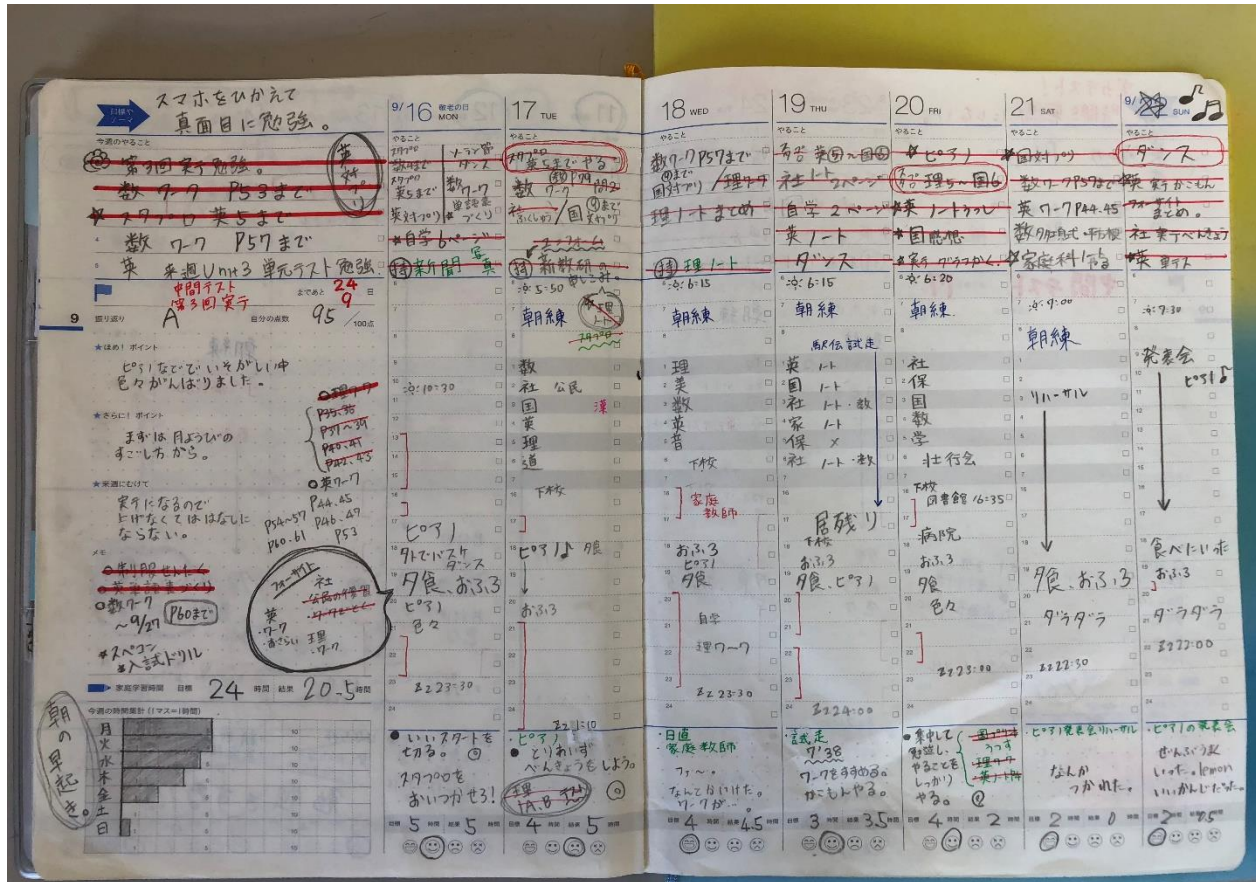 目標や
テーマ
スマホをひかえて
真面目に勉強。
今週のやること
第3回実テ勉強。
数ワーク P53まで
スタプロ 英5まで
数 ワーク P57まで
英 来週Unit3 単元テスト勉強
英対プリ
中間テスト
第3回実テ
まであと 24 日
9
9
振り返り A 自分の点数 95 /100点
★ほめ!ポイント
ピアノなどでいそがしい中
色々がんばりました。
★さらに!ポイント
まずは月ようびの
すごし方から。
理ワーク
P35.36
P37~39
P40.41
P42.43
★来週にむけて
実テになるので
上げなくてははなしに
ならない。
英ワーク
P44.45
P54~57 P46.49
P60.61 P53
メモ
制服せんたく
英単語表づくり
数ワーク
~9/27 P60まで
*スペコン
*入試ドリル
フォーサイト
社
英
・ワーク
・おさらい
理
・ワーク
家庭学習時間 目標 24 時間 結果 20.5 時間
今週の時間集計(1マス=1時間)
月
火
水
木
金
土
日
朝の早起き。
9/16 敬老の日
MON
やること
スタプロ
数2まで
スタプロ
英5まで
英対プリ
ソーラン節
ダンス
数
ワーク
単語表
づくり
*自学6ページ
新聞 写真
10:30
ピアノ
外でバスケ
ダンス
夕食、おふろ
ピアノ
色々
Zz 23:30
●いいスタートを
切る。
スタプロを
おいつかせろ!
目標 5 時間 結果 5 時間
17 TUE
やること
スタプロ
英5までやる
数 ワーク
社
国
新教研
申しこみ
5:50
朝練
理
ノート
スタプロ
数
社 公民
国 漢
英
理
道
下校
ピアノ♪ 夕食
おふろ
Zz 1:10
・ピアノ
●とりあいず
べんきょうをしよう。
理
1A.B
目標 4 時間 結果 5 時間
18 WED
やること
数ワークP57まで
国対プリ/理ワーク
理ノートまとめ
理ノート
6:15
朝練
理
美
数
英
音
下校
家庭
教師
おふろ
ピアノ
夕食
自学
理ワーク
Zz 23:30
・日直
・家庭教師
ファ〜。
なんとかいけた。
ワークが…。
目標 4 時間 結果 4.5 時間
19 THU
やること
社ノート2ページ
自学2ページ
英ノート
ダンス
6:15
朝練
駅伝試走
英 ノート
国 ノート
社 ノート・数
家 ノート
保 ×
社 ノート・数
居残り
下校
おふろ
夕食、ピアノ
Zz 24:00
・試走
7'38
ワークをすすめる。
かこもんやる。
目標 3 時間 結果 3.5 時間
20 FRI
やること
*ピアノ
スタプロ 理5~国6
*英 ノートうつし
*国感想
*実テ グラフかく。
6:20
朝練
社
保
国
数
学
壮行会
下校
図書館 16:35
病院
おふろ
夕食
色々
Zz 23:00
●集中して
勉強し、
やることを
しっかり
やる。
国プリ
うつす
理ワーク
英ノート
目標 4 時間 結果 2 時間
21 SAT
やること
*国対プリ
数ワークP57まで
英ワークP44.45
数 多項式・平方根
*家庭科
7:00
朝練
リハーサル
夕食、おふろ
ダラダラ
Zz 22:30
・ピアノ発表会リハーサル
なんか
つかれた。
目標 2 時間 結果 0 時間
9/ SUN
やること
ダンス
*英 実テかこもん
フォーサイト
まとめ。
社 実テべんきょう
*英 単テス
7:30
発表会
ピアノ♪
食べたい
おふろ
ダラダラ
Zz 22:00
・ピアノの発表会
ぜんぶうまく
いった。lemon
いいかんじだった。